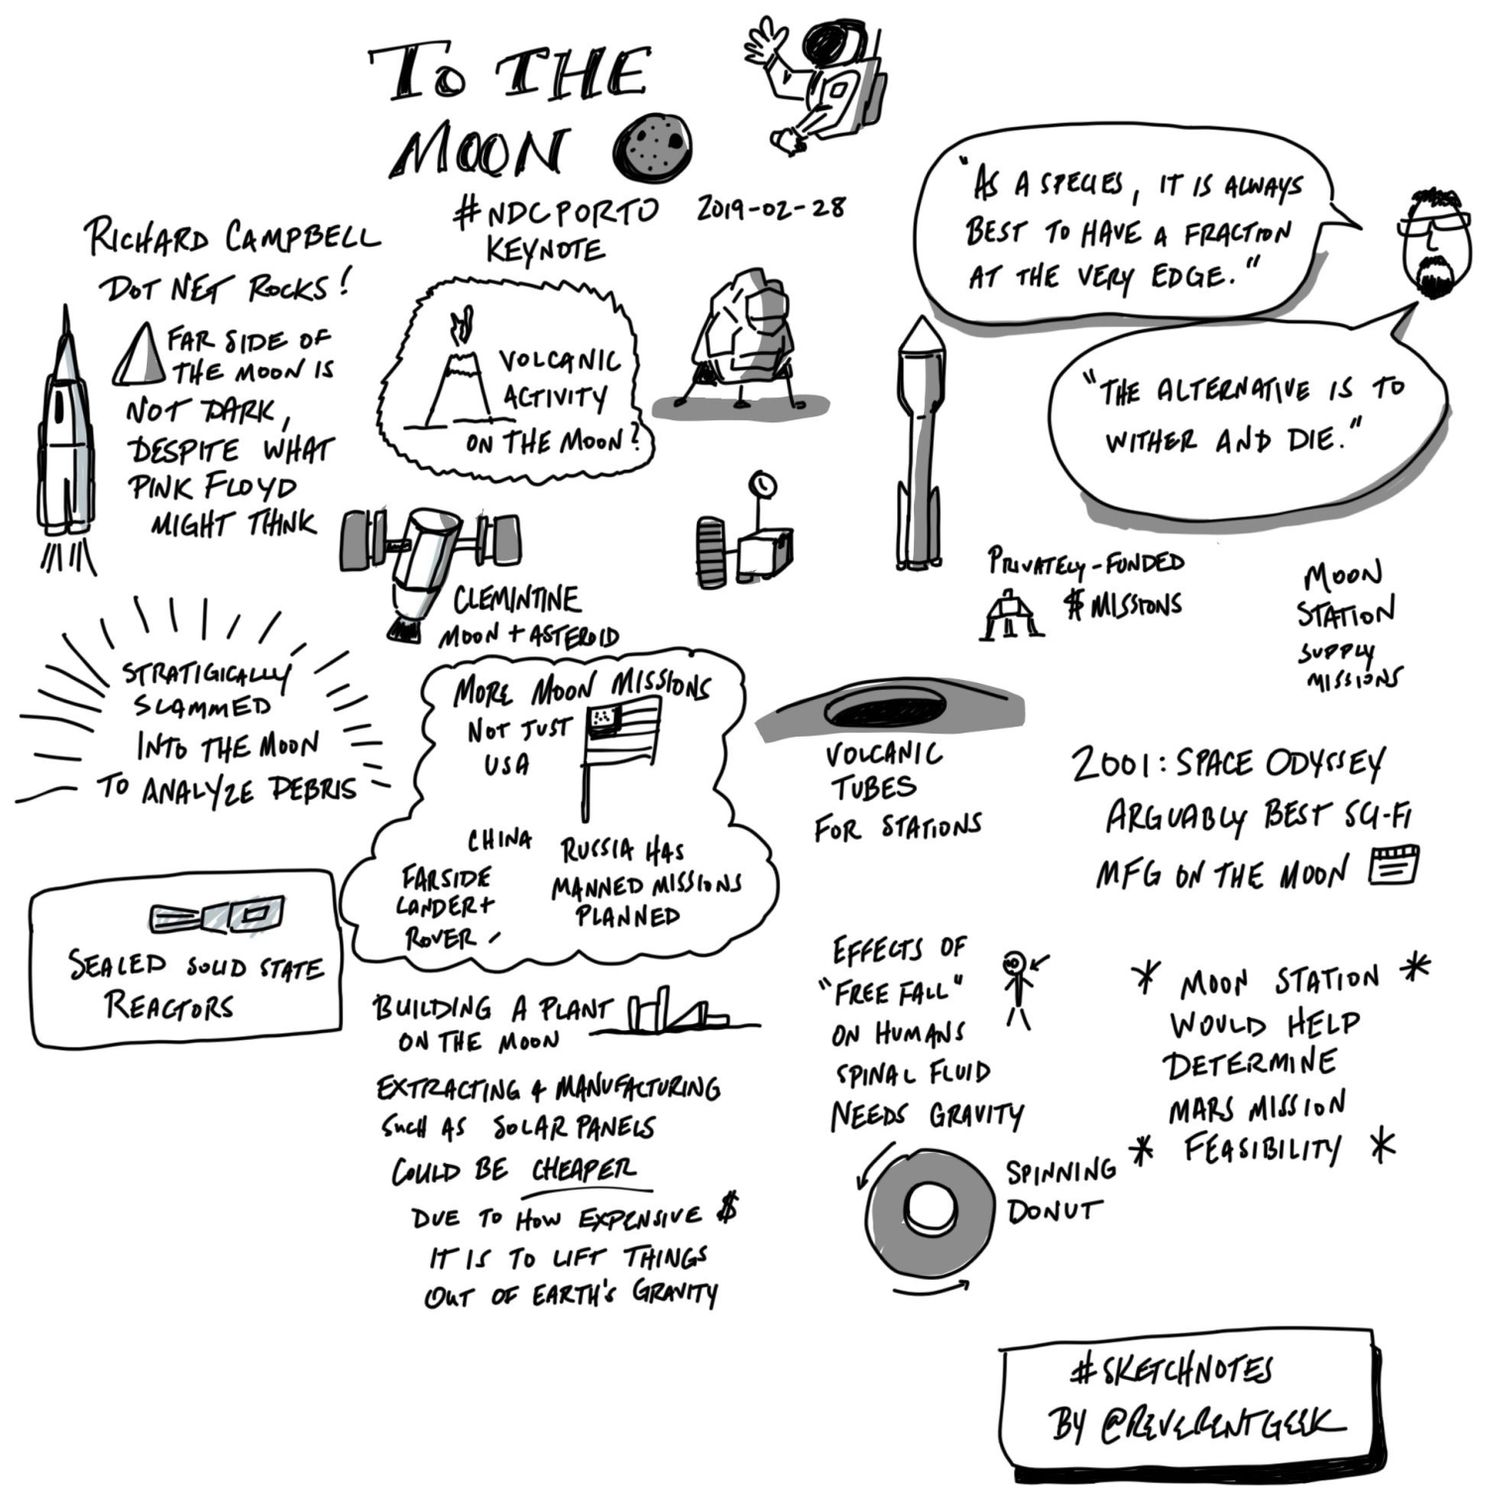 TO THE
MOON
#NDCPORTO 2019-02-28
KEYNOTE
RICHARD CAMPBELL
DOT NET ROCKS!
FAR SIDE OF
THE MOON IS
NOT DARK,
DESPITE WHAT
PINK FLOYD
MIGHT THINK
VOLCANIC
ACTIVITY
ON THE MOON?
"AS A SPECIES, IT IS ALWAYS
BEST TO HAVE A FRACTION
AT THE VERY EDGE."
"THE ALTERNATIVE IS TO
WITHER AND DIE."
CLEMINTINE
MOON + ASTEROID
PRIVATELY-FUNDED
$ MISSIONS
MOON
STATION
SUPPLY
MISSIONS
STRATIGICALLY
SLAMMED
INTO THE MOON
TO ANALYZE DEBRIS
MORE MOON MISSIONS
NOT JUST
USA
CHINA
FARSIDE
LANDER +
ROVER
RUSSIA HAS
MANNED MISSIONS
PLANNED
VOLCANIC
TUBES
FOR STATIONS
2001: SPACE ODYSSEY
ARGUABLY BEST SCI-FI
MFG ON THE MOON
SEALED SOLID STATE
REACTORS
BUILDING A PLANT
ON THE MOON
EXTRACTING & MANUFACTURING
SUCH AS SOLAR PANELS
COULD BE CHEAPER
DUE TO HOW EXPENSIVE $
IT IS TO LIFT THINGS
OUT OF EARTH'S GRAVITY
EFFECTS OF
"FREE FALL"
ON HUMANS
SPINAL FLUID
NEEDS GRAVITY
SPINNING
DONUT
* MOON STATION *
WOULD HELP
DETERMINE
MARS MISSION
* FEASIBILITY *
#SKETCHNOTES
BY @REVERENTGEEK